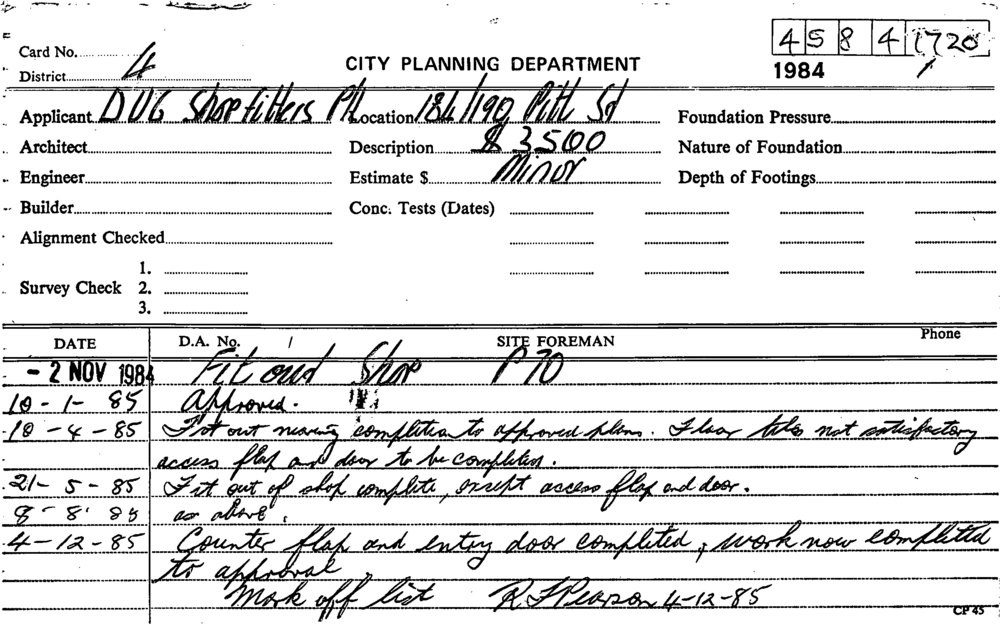 45841720
Card No.
CITY PLANNING DEPARTMENT
1984
District 4
Applicant DUG Shopfitters P/L Location 184/190 Pitt St Foundation Pressure
Architect Description $ 3500 Nature of Foundation
Engineer Estimate $ Minor Depth of Footings
Builder Conc. Tests (Dates)
Alignment Checked
1.
Survey Check 2.
3.
DATE D.A. No. / SITE FOREMAN Phone
- 2 NOV 1984 Fit out Shop P70
10 - 1 - 85 Approved.
10 - 4 - 85 Fit out nearing completion to approved plans. Floor tiles not satisfactory
access flap and door to be completed.
21 - 5 - 85 Fit out of shop complete, except access flap and door.
8 - 8 - 85 as above.
4 - 12 - 85 Counter flap and entry door completed, work now completed
to approval
Mark off list R F Pearson 4-12-85
CP 45